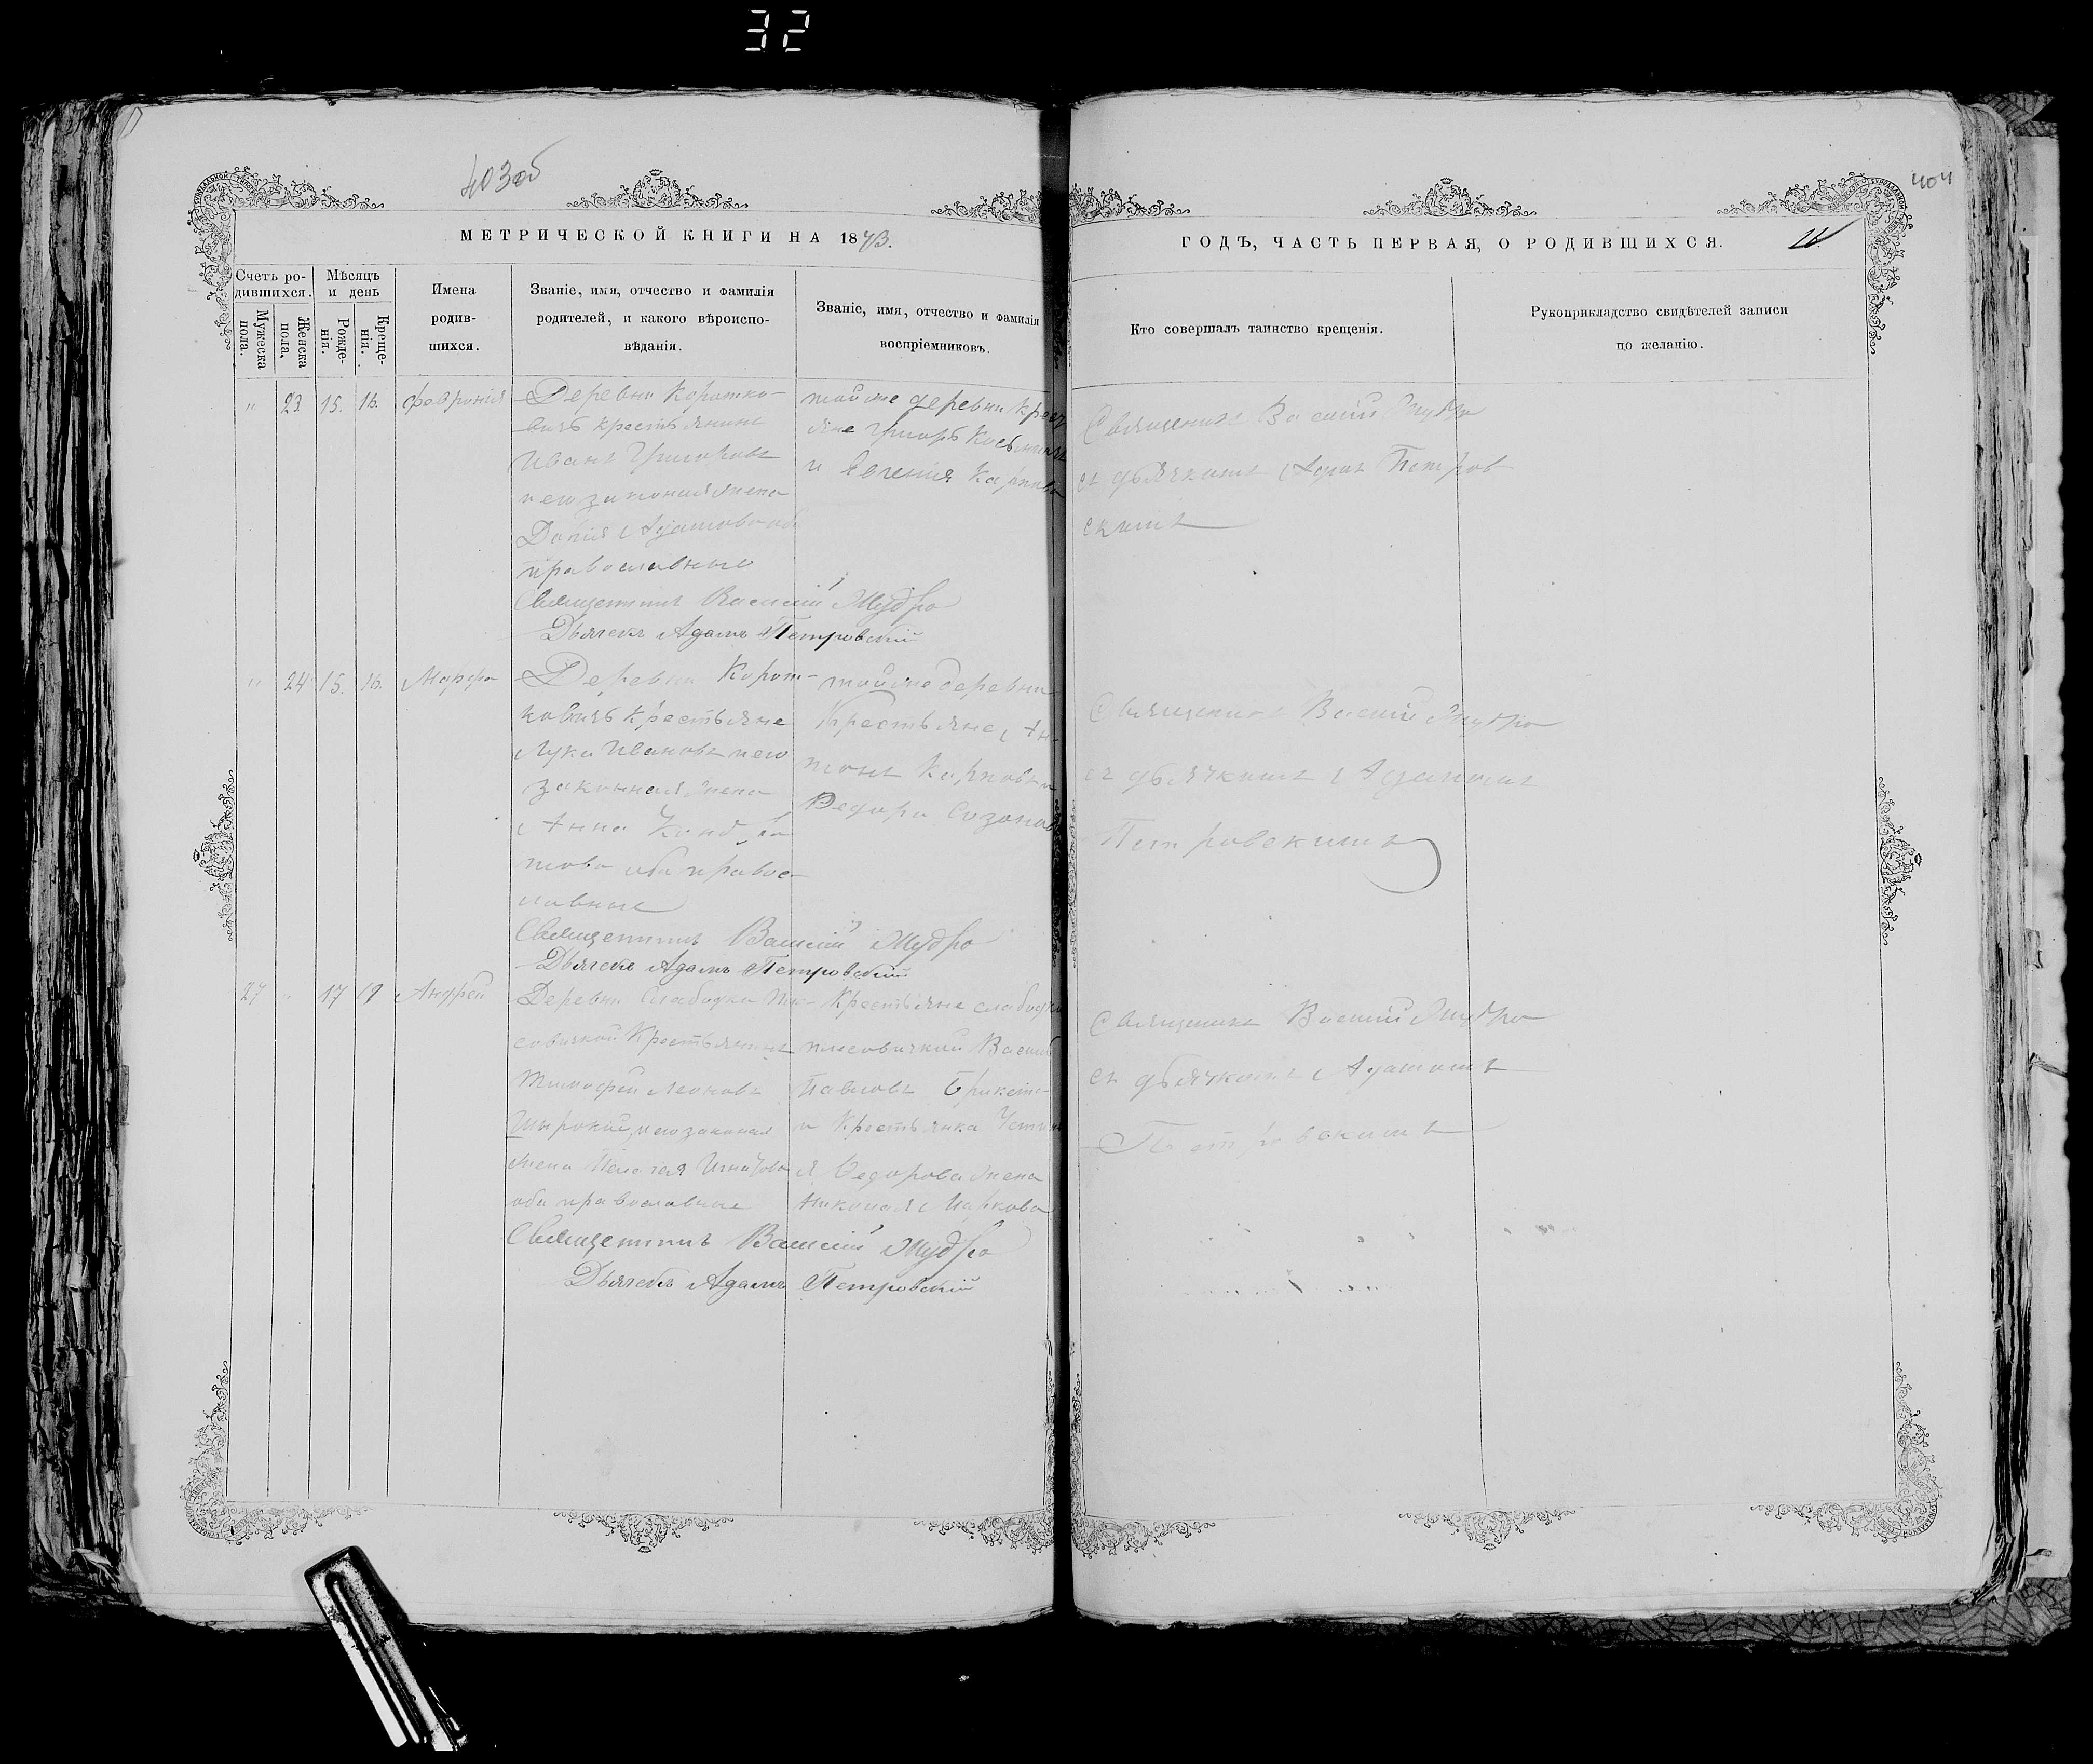 32
403 об
404
МЕТРИЧЕСКОЙ КНИГИ НА 1873.
ГОДЪ, ЧАСТЬ ПЕРВАЯ, О РОДИВШИХСЯ.
Счетъ ро-
дившихся.
Мужеска
пола.
Женска
пола.
Мѣсяцъ
и день
Рожде-
нія.
Креще-
нія.
Имена
родив-
шихся.
Званіе, имя, отчество и фамилія
родителей, и какого вѣроиспо-
вѣданія.
Званіе, имя, отчество и фамилія
воспріемниковъ.
Кто совершалъ таинство крещенія.
Рукоприкладство свидѣтелей записи
по желанію.
" 23. 15. 16. Февронія
Деревни Коротко-
вичь крестьянинъ
Иванъ Григоровъ
и его законная жена
Адамова
православные
тойже деревни
и Евгенія Карпова
Священникъ Василій Мудро
съ дьячкомъ Адам Петров
скимъ
Священникъ Василій Мудро
Дьячекъ Адамъ Петровскій
" 24 15. 16. Марфа
Деревни Корот-
ковичь крестьяне
Лука Ивановъ и его
законная жена
Анна Конд ра
това оба правос-
лавные
тойже деревни
Крестьяне Ан-
тонъ Карповъ и
Федора Созонова
Священникъ Василій Мудро
съ дьячкомъ Адамомъ
Петровскимъ
Священникъ Василій Мудро
Дьячекъ Адамъ Петровскій
27 " 17 19 Андрей
Деревни Слабодки Пле-
совичкой Крестьянинъ
Тимофей Леоновъ
Широкий, и его законная
жена Пелагея Игнатова
оба православные
Крестьяне слабодки
плесовичкой Василій
Павловъ
и Крестьянка Устин
я Федорова жена
Николая Маркова
Священникъ Василій Мудро
съ дьячкомъ Адамомъ
Петровскимъ
Священникъ Василій Мудро
Дьячекъ Адамъ Петровскій